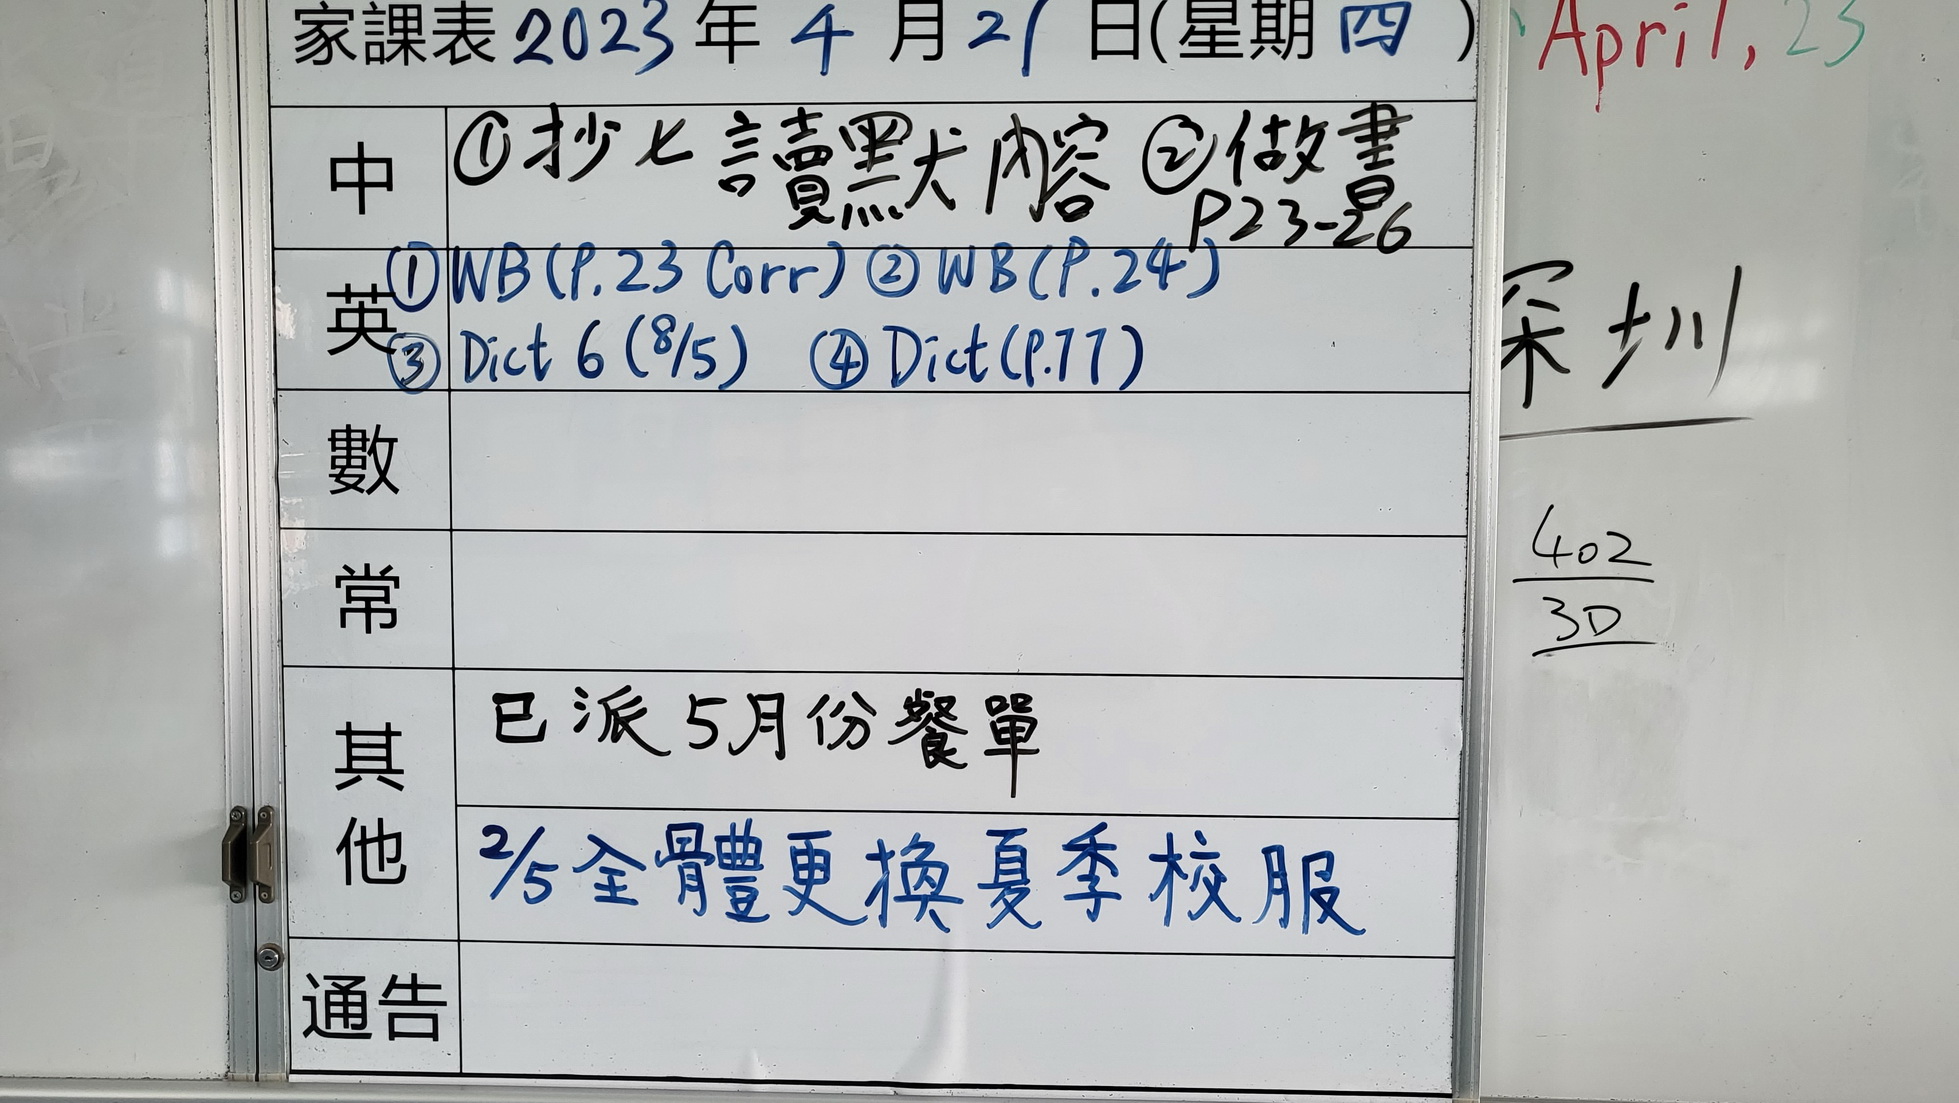 家課表 2023 年 4 月 21 日(星期 四 )
April, 23
中
①抄七 讀默內容 ②做書
P23-26
英
①WB(P.23 Corr) ②WB(P.24)
③ Dict 6 (8/5) ④Dict(P.77)
深圳
數
402
30
常
其他
已派5月份餐單
2/5全體更換夏季校服
通告